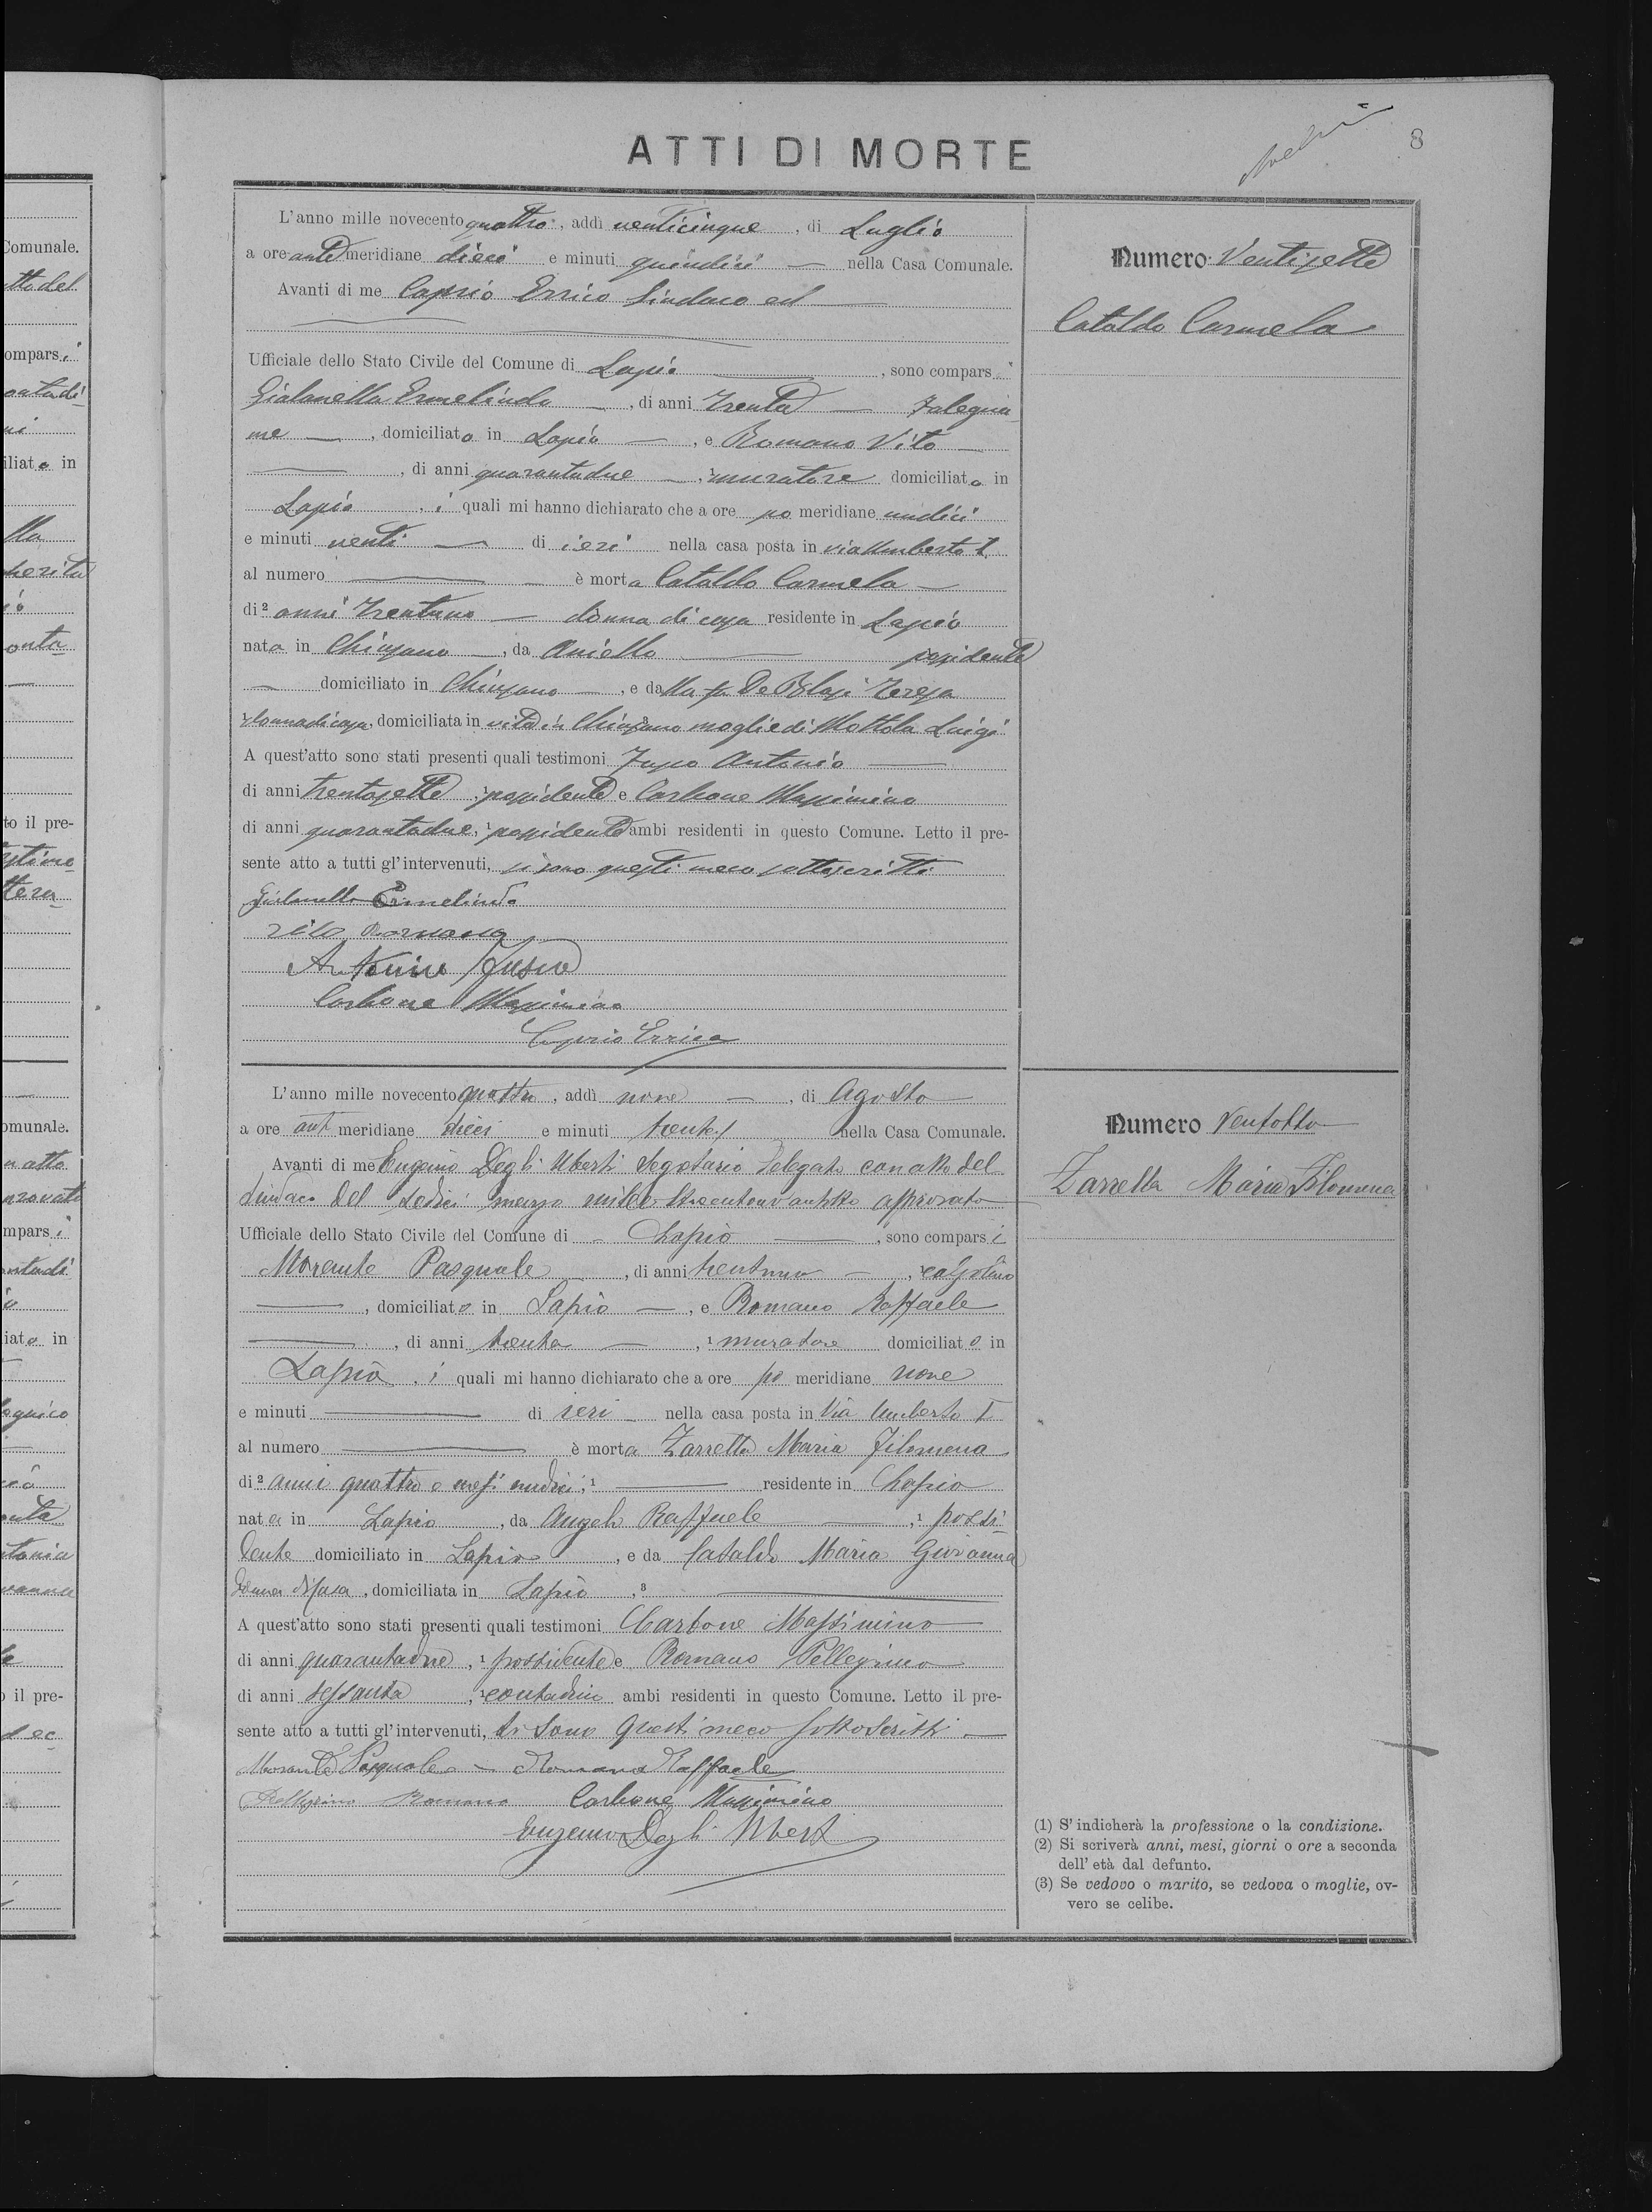 ATTI DI MORTE
8
L'anno mille novecento quattro, addì venticinque, di Luglio
a ore ante meridiane dieci e minuti quindici nella Casa Comunale.
Avanti di me Caprio Errico Sindaco ed
Ufficiale dello Stato Civile del Comune di Lapio, sono comparsi
Gialanella Ermelindo, di anni trenta falegna
me, domiciliato in Lapio, e Romano Vito
, di anni quarantadue, 1 muratore domiciliato in
Lapio, i quali mi hanno dichiarato che a ore po meridiane undici
e minuti venti di ieri nella casa posta in via Umberto I
al numero è morta Cataldo Carmela
di 2 anni trentuno donna di casa residente in Lapio
nata in Chiusano, da Aniello possidente
domiciliato in Chiusano, e da De Blasi Teresa
donna di casa, domiciliata in vita in Chiusano 3 moglie di Mottola Luigi
A quest'atto sono stati presenti quali testimoni Antonio
di anni trentasette, possidente e Carbone Massimino
di anni quarantadue, 1 possidente ambi residenti in questo Comune. Letto il pre-
sente atto a tutti gl'intervenuti, si sono questi meco sottoscritti
Gialanella Ermelindo
Vito Romano
Antonio
Carbone Massimino
Caprio Errico
Numero Ventisette
Cataldo Carmela
L'anno mille novecento quattro, addì nove, di Agosto
a ore ant meridiane dieci e minuti trenta nella Casa Comunale.
Avanti di me Eugenio Degli Uberti Segretario Delegato con atto del
Sindaco del sedici marzo mille approvato
Ufficiale dello Stato Civile del Comune di Lapio, sono comparsi
Morante Pasquale, di anni trentuno, 1 calzolaio
, domiciliato in Lapio, e Romano Raffaele
, di anni trenta, 1 muratore domiciliato in
Lapio, i quali mi hanno dichiarato che a ore po meridiane nove
e minuti di ieri nella casa posta in Via Umberto I
al numero è morta Zarrella Maria Filomena
di 2 anni quattro e mesi undici, 1 residente in Lapio
nata in Lapio, da Angelo Raffaele, 1 possi-
dente domiciliato in Lapio, e da Cataldo Maria Giovanna
donna di casa, domiciliata in Lapio, 3
A quest'atto sono stati presenti quali testimoni Carbone Massimino
di anni quarantadue, 1 possidente e Romano Pellegrino
di anni sessanta, 1 contadino ambi residenti in questo Comune. Letto il pre-
sente atto a tutti gl'intervenuti, si sono questi meco sottoscritti.
Morante Pasquale - Romano Raffaele
Pellegrino Romano Carbone Massimino
Eugenio Degli Uberti
Numero Ventotto
Zarrella Maria Filomena
(1) S'indicherà la professione o la condizione.
(2) Si scriverà anni, mesi, giorni o ore a seconda
dell' età dal defunto.
(3) Se vedovo o marito, se vedova o moglie, ov-
vero se celibe.